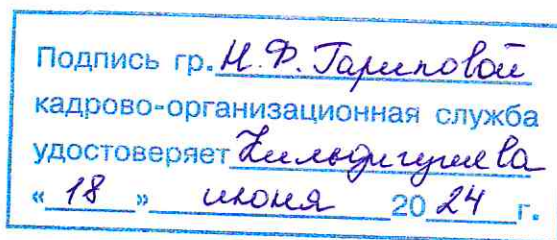 Подпись гр. Н.Ф. Гариповой
кадрово-организационная служба
удостоверяет
« 18 » июня 20 24 г.